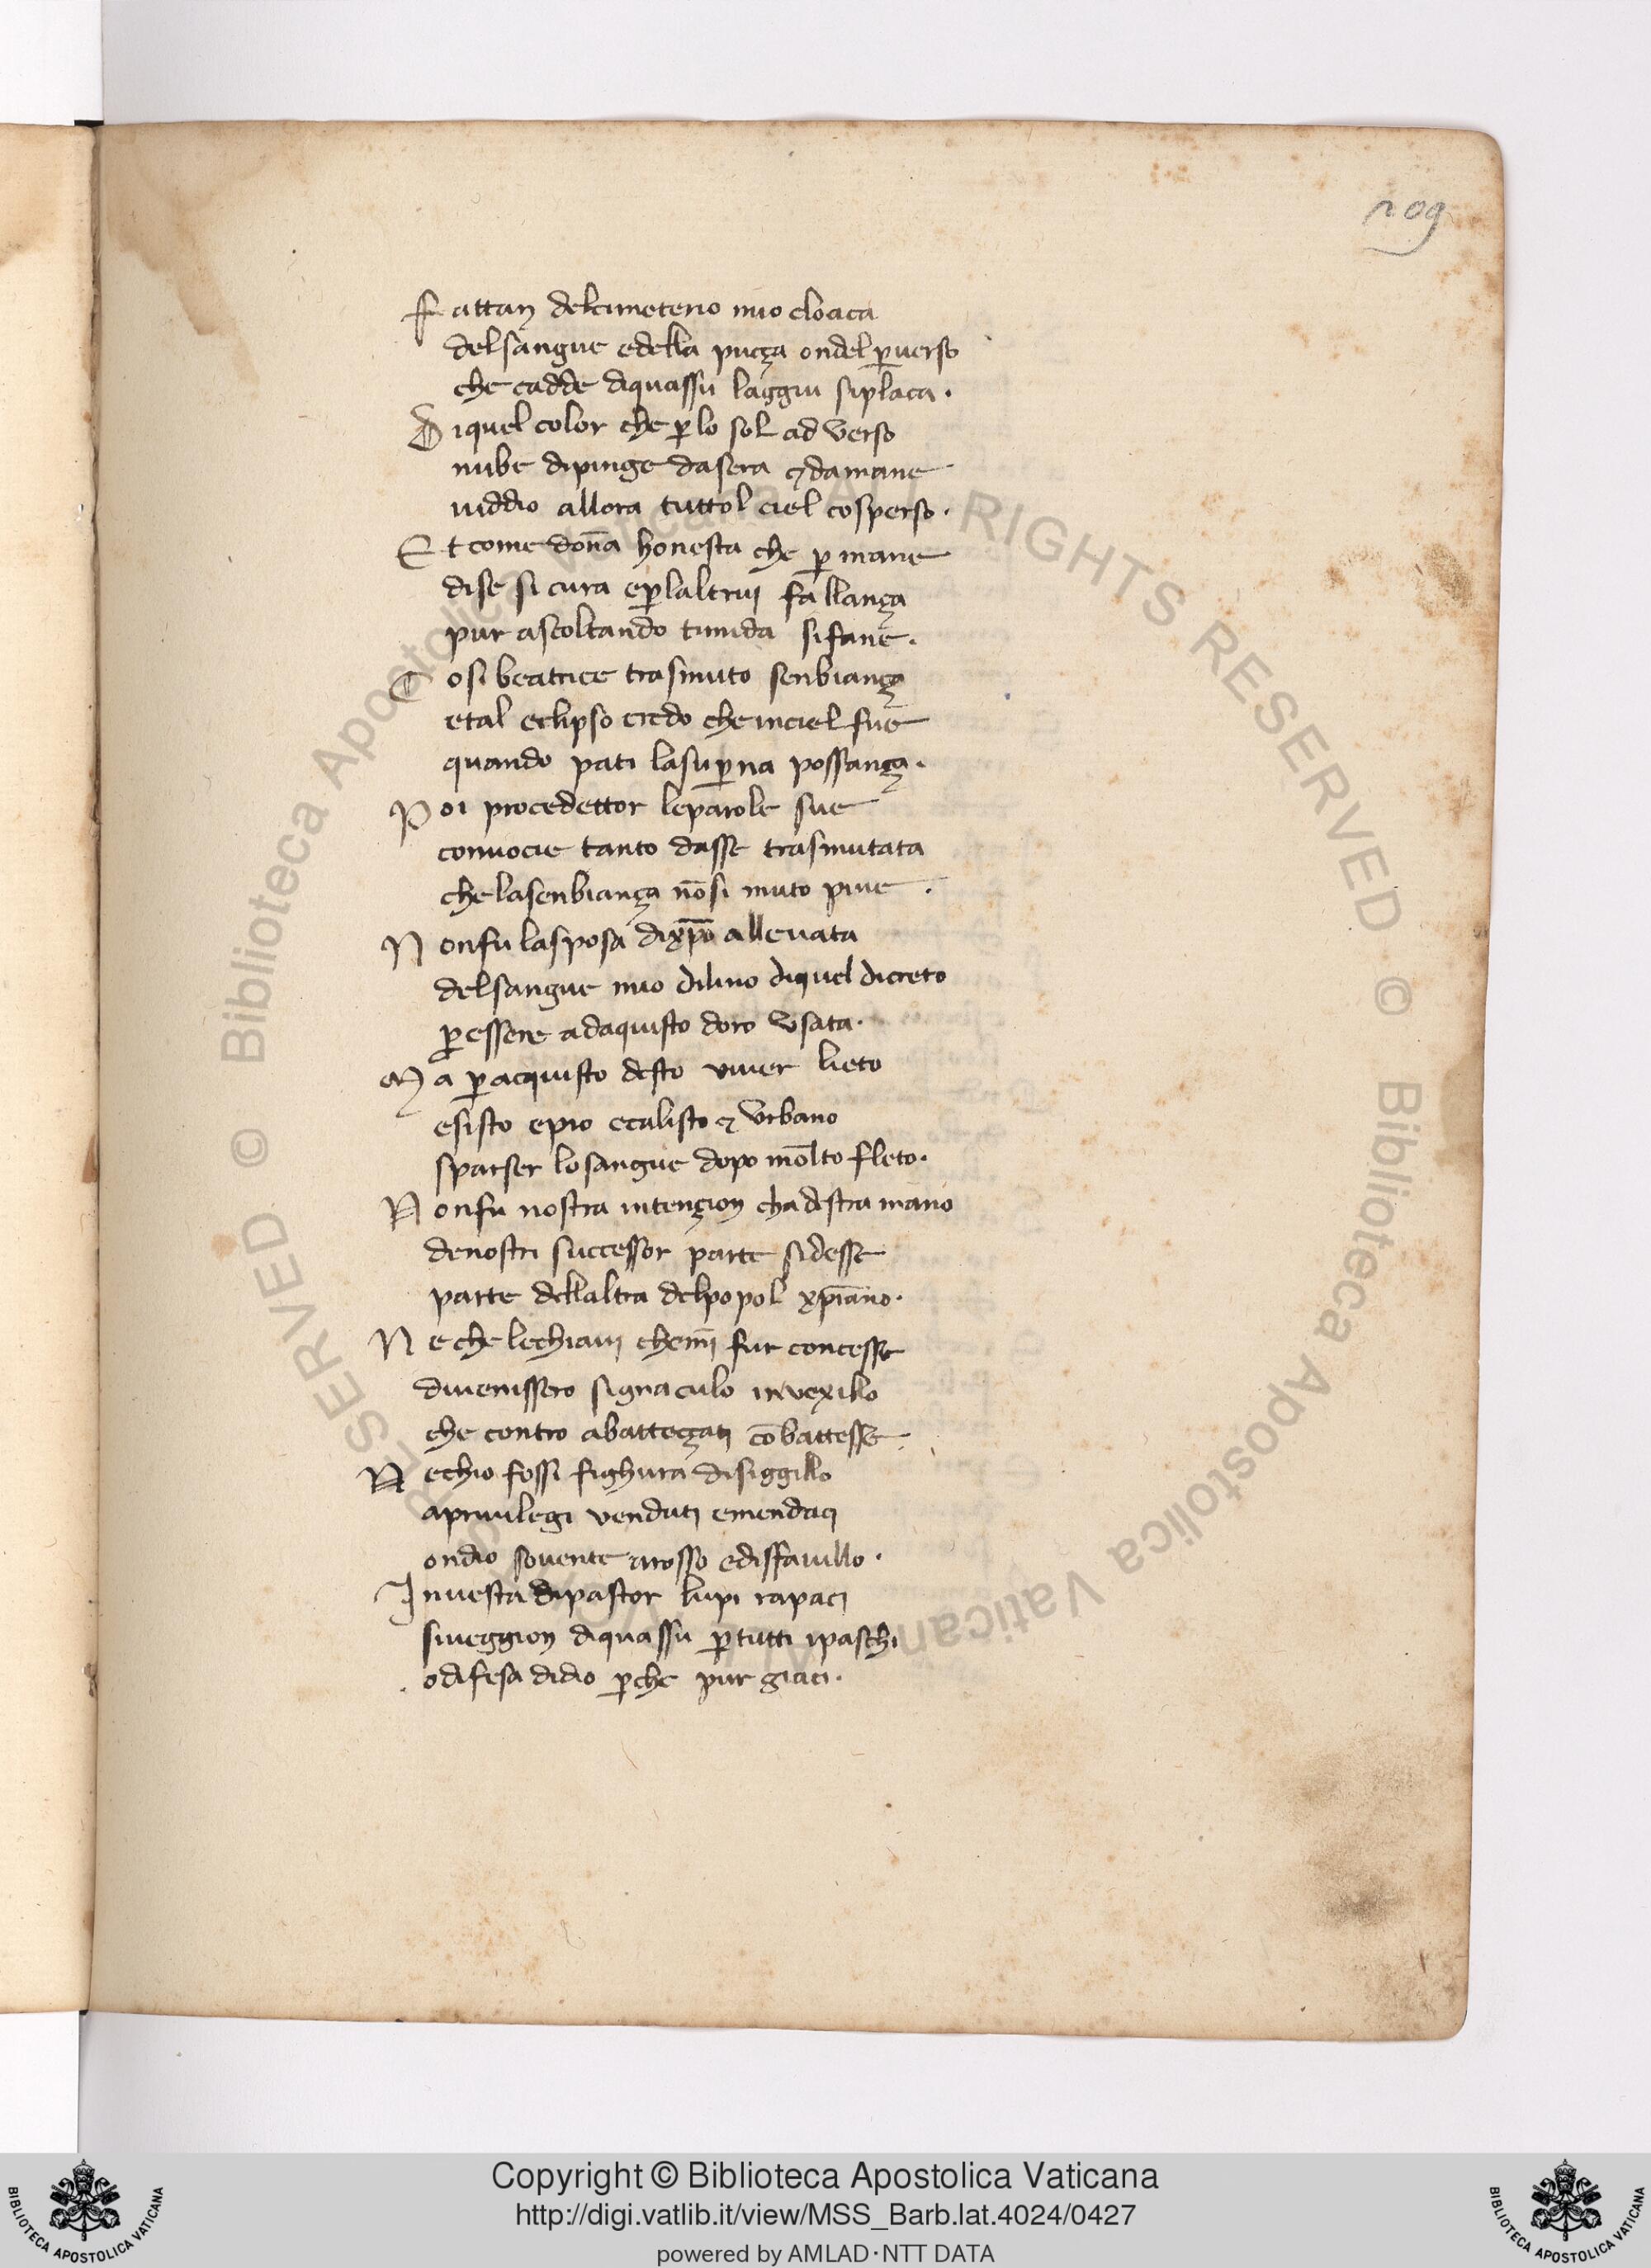 209
Fattaɳ delcimeterio mio cloaca
delsangue edella puçça ondel ꝑuerso
che cadde diquassu laggiu siplaca.
Diquel color che ꝑ lo sol ad verso
nube dipinge dasera ⁊ damane
uiddio allora tuttol ciel cosperso.
Et come don̄a honesta che ꝑ mane
dise si cura eꝑ laltrui fallança
pur ascoltando timida sifane.
Cosi beatrice trasmuto senbiança
etal eclipso credo che inciel fue
quando pati lasuꝑna possança.
Poi procedettor leparole sue
conuocie tanto dasse trasmutata
chelasenbiança nōsi muto piue.
Nonfu lasposa dixp̄o alleuata
delsangue mio dilino diquel dicreto
ꝑ essere adaquisto doro vsata.
Ma ꝑ acquisto desto viuer lieto
esisto epio ecalisto ⁊ vrbano
sparser losangue dopo mōlto fleto.
Nonfu nostra intençion cha destra mano
denostri successor parte sidesse
parte dellaltra delpopol xp̄iano.
Ne che lechiaui chemī fur concesse
diuenissero signaculo in vexillo
che contro abatteçati cōbattesse.
Nechio fossi fighura disiggillo
apriuilegi venduti emendaci
ondio souente arrosso edisfauillo.
Inuesta dipastor lupi rapaci
siueggion diquassu ꝑ tutti ipaschi
odifesa didio ꝑche pur giaci.
© Biblioteca Apostolica Vaticana ALL RIGHTS RESERVED © Biblioteca Apostolica Vaticana ALL RIGHTS RESERVED
Copyright © Biblioteca Apostolica Vaticana
http://digi.vatlib.it/view/MSS_Barb.lat.4024/0427
powered by AMLAD·NTT DATA
BIBLIOTECA APOSTOLICA VATICANA
BIBLIOTECA APOSTOLICA VATICANA